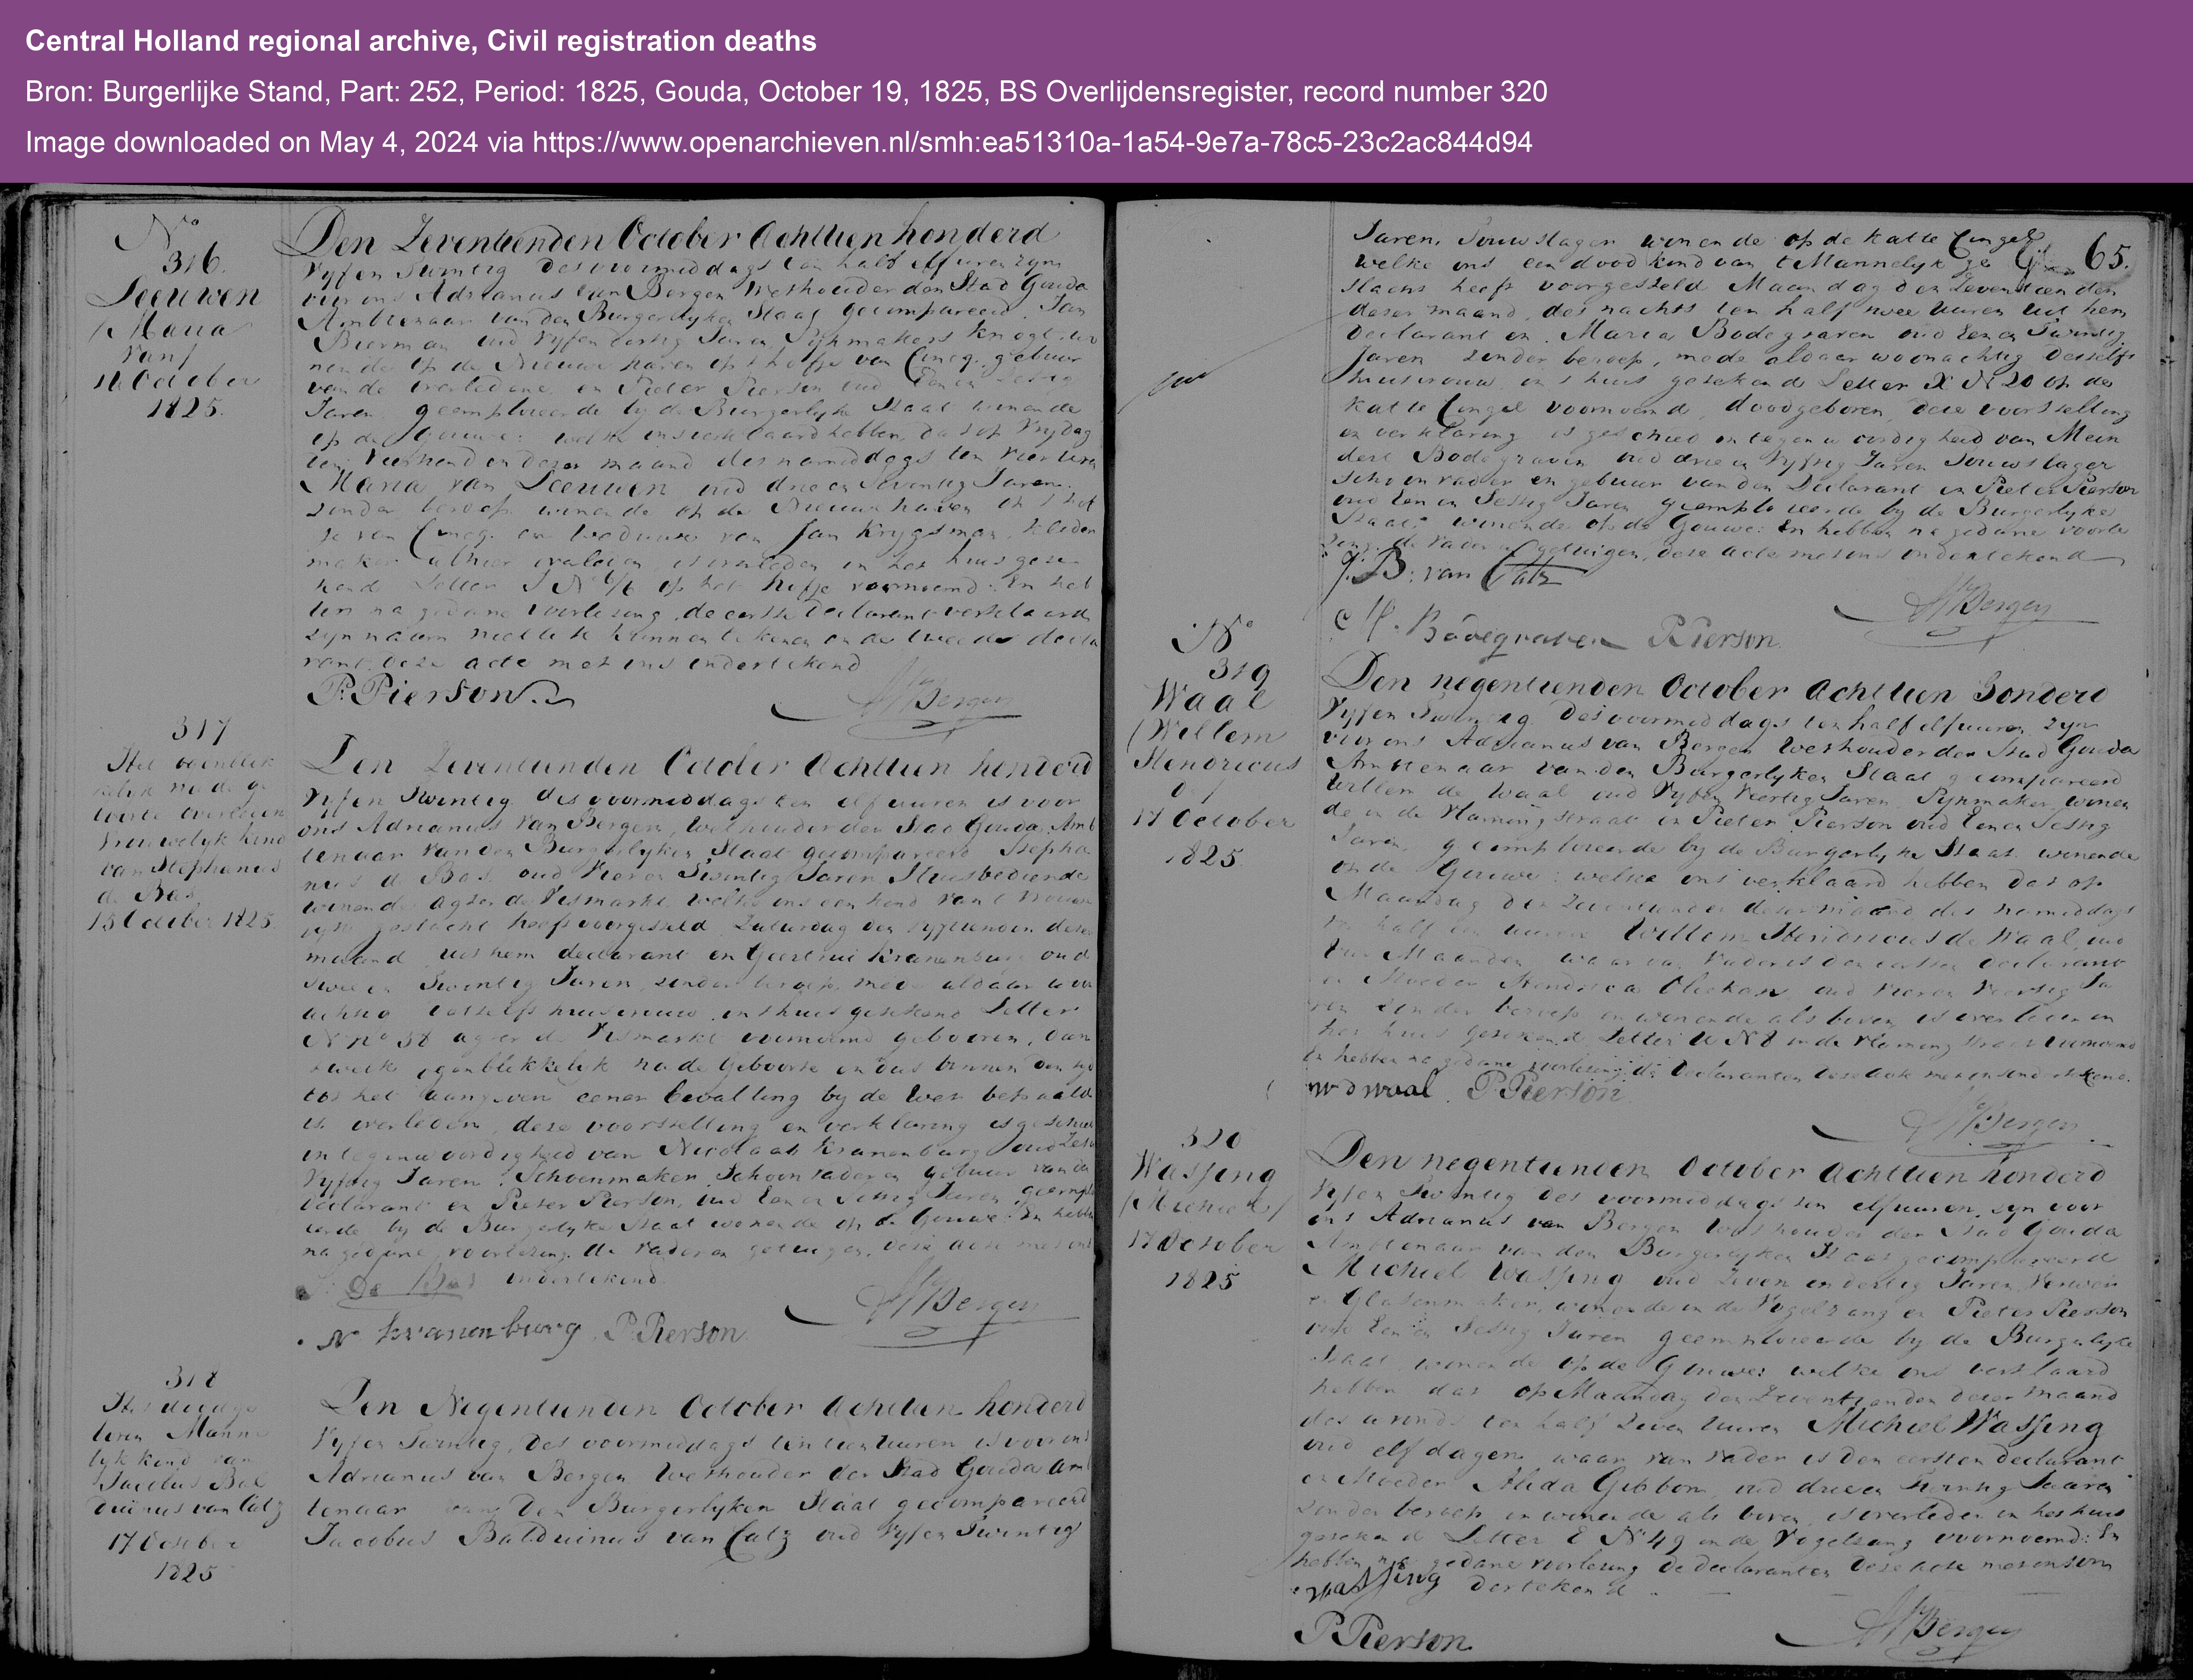 Central Holland regional archive, Civil registration deaths
Bron: Burgerlijke Stand, Part: 252, Period: 1825, Gouda, October 19, 1825, BS Overlijdensregister, record number 320
Image downloaded on May 4, 2024 via https://www.openarchieven.nl/smh:ea51310a-1a54-9e7a-78c5-23c2ac844d94
No
316.
Leeuwen
(Maria
van)
October
1825.
Den Zeventienden October Achttien honderd
Vyf en Twintig des voormiddags ten half elf uuren zyn
voor ons Adrianus van Bergen Wethouder der Stad Gouda
Ambtenaar van den Burgerlyken Staat gecompareerd Jan
Bierman oud Vyf en dertig Jaren Pypmakers knegt wo
nende op de Nieuwe haven op t hofje van gebuur
van de overledene en Pieter Pierson oud Een en Sestig
Jaren geemploieerde by de Burgerlyke Staat wonende
op de Gouwe: welke ons verklaard hebben, dat op Vrydag
den Veertienden dezer maand des namiddags ten vier uren
Maria van Leeuwen oud drie en Seventig Jaren
zonder beroep wonende op de Nieuwehaven op t hof
je van en Weduwe van Jan Krygsman, kleder
maker alhier overleden, is overleden in het huis gete
kend Letter I No op het hofje voornoemd. En heb
ben na gedane voorlezing de eerste declarant verklaard
zyn naam niet te kunnen tekenen en de tweede decla
rant deze acte met ons ondertekend
P. Pierson.
AV Bergen
317
Het oogenblik
kelyk na de ge
boorte overleden
Vrouwelyk kind
van Stephanus
de Bas
15 October 1825
Den Zeventienden October Achttien honderd
Vyf en Twintig des voormiddags ten elf uuren is voor
ons Adrianus van Bergen, Wethouder der Stad Gouda, Amb
tenaar van den Burgerlyken Staat gecompareerd Stepha
nus de Bas oud Vier en Twintig Jaren Huisbediende
wonende agter de Vismarkt, welke ons een kind van t vrouwe
lyk geslacht heeft voorgesteld Zaturdag den vyftienden dezer
maand uit hem declarant en Geertrui Kranenburg oud
twee en Twintig Jaren, zonder beroep, mede aldaar woon
achtig deszelfs huisvrouw, in t huis getekend Letter
N no 38 agter de Vismarkt voornoemd gebooren, dan
t welk ogenblikkelyk na de Geboorte en dus binnen den tyd
tot het aangeven eener bevalling by de Wet bepaald
is overleden, deze voorstelling en verklaring is geschied
in tegenwoordigheid van Nicolaas Kranenburg oud Zes en
Vyftig Jaren, Schoenmaker, Schoonvader en gebuur van den
declarant en Pieter Pierson, oud Een en Sestig Jaren geemplo
ieerde by de Burgerlyke Staat wonende op de Gouwe: En hebben
na gedane voorlezing de vader en getuigen, deze acte met ons
ondertekend.
De Bas
N Kranenburg P. Pierson
AV Bergen
318
Het doodge
boren Manne
lyk kind van
Jacobus Bal
duinus van Catz
17 October
1825
Den Negentienden October Achttien honderd
Vyf en Twintig, des voormiddags ten tien uuren is voor ons
Adrianus van Bergen Wethouder der Stad Gouda Amb
tenaar van den Burgerlyken Staat gecompareerd
Jacobus Balduinus van Catz oud Vyf en Twintig
65.
Jaren, Touwslager wonende op de Katte Cingel
welke ons een dood kind van t Mannelyk ge
slacht heeft voorgesteld Maandag den Zeventienden
dezer maand, des nachts ten half twee uuren uit hem
declarant en Maria Bodegraven oud Een en Twintig
Jaren zonder beroep, mede aldaar woonachtig deszelfs
huisvrouw, in t huis getekende Letter X N 20 op de
Katte Cingel voornoemd, doodgeboren, deze voorstelling
en verklaring is geschied in tegenwoordigheid van Mein
dert Bodegraven oud drie en Vyftig Jaren Touwslager
Schoonvader en gebuur van den Declarant en Pieter Pierson
oud Een en Sestig Jaren geemploieerde by de Burgerlyke
Staat wonende op de Gouwe: En hebben na gedane voorle
zing, de vader en getuigen, deze acte met ons ondertekend
J. B. van Catz
AV Bergen
M. Bodegraven P. Pierson
No
319
Waal
(Willem
Hendricus
de)
17 October
1825.
Den negentienden October Achttien Honderd
Vyf en Twintig. Des voormiddags ten half elf uuren zyn
voor ons Adrianus van Bergen Wethouder der Stad Gouda
Ambtenaar van den Burgerlyken Staat gecompareerd
Willem de Waal oud Vyf en Veertig Jaren Pypmaker wonen
de in de Vlamingstraat en Pieter Pierson oud Een en Sestig
Jaren, geemploieerde by de Burgerlyke Staat wonende
op de Gouwe: welke ons verklaard hebben dat op
Maandag den Zeventienden dezer maand des namiddags
ten half een uuren Willem Hendricus de Waal, oud
Maanden, waar van Vader is den eersten declarant
en Moeder Hendrica oud Vier en Veertig Ja
ren zonder beroep en wonende als boven is overleden in
het huis getekend Letter N 8 in de Vlamingstraat voornoemd
En hebben na gedane voorlezing de Declaranten deze acte met ons ondertekend.
W d Waal. P. Pierson
AV Bergen
320
Wassing
(Michiel)
17 October
1825
Den negentienden October Achttien honderd
Vyf en Twintig des voormiddags ten elf uuren, zyn voor
ons Adrianus van Bergen Wethouder der Stad Gouda
Ambtenaar van den Burgerlyken Staat gecompareerd
Michiel Wassing oud Zeven en dertig Jaren, Verwer
en Glasenmaker, wonende in de Vogelzang en Pieter Pierson
oud Een en Sestig Jaren geemploieerde by de Burgerlyke
Staat wonende op de Gouwe: welke ons verklaard
hebben dat op Maandag den Zeventienden dezer maand
des avonds ten half zeven Uuren Michiel Wassing
oud elf dagen waar van vader is den eersten declarant
en Moeder Alida Gibbon, oud drie en Jaaren
zonder beroep en wonende als boven, is overleden in het huis
getekend Letter E N 49 in de Vogelzang voornoemd: En
hebben na gedane voorlezing de declaranten deze acte met ons on
dertekend
Wassing
P. Pierson
AV Bergen